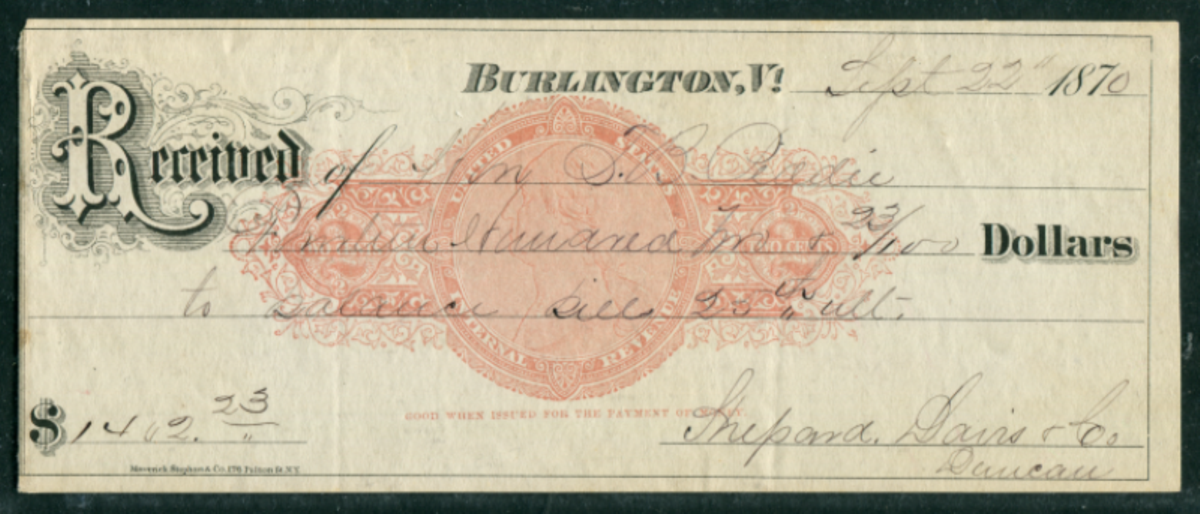 BURLINGTON, Vt. Sept 22" 1870
Received of Hon T.B.
Fourteen Hundred Two & 23/100 Dollars
to balance bill 25th ult.
UNITED STATES INTERNAL REVENUE
TWO CENTS
GOOD WHEN ISSUED FOR THE PAYMENT OF MONEY.
$ 1402. 23/"
Shepard, Davis & Co
Duncan
Maverick Stephan & Co. 176 Fulton St. N.Y.